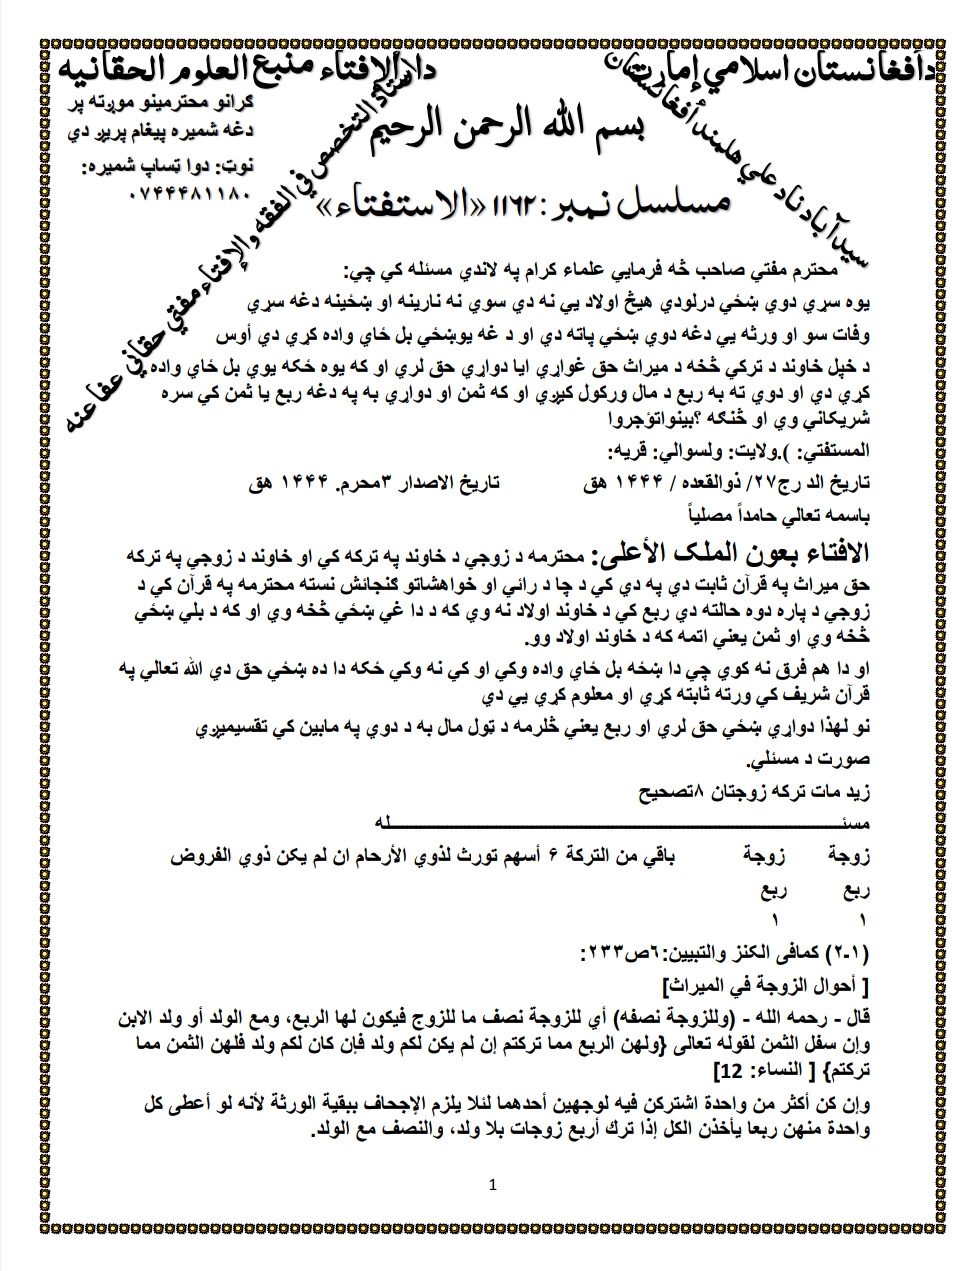 دافغانستان اسلامي إمارت
دارالإفتاء منبع العلوم الحقانيه
سيدآباد ناد علي هلمند أفغانستان
أستاذ التخصص في الفقه والإفتاء مفتي حقاني عفا عنه
ګرانو محترمينو موږته پر
دغه شميره پيغام پرېږ دي
نوټ: دوا ټساپ شميره:
۰۷۴۴۴۸۱۱۸۰
بسم الله الرحمن الرحيم
مسلسل نمبر:۱۱۶۲«الاستفتاء»
محترم مفتي صاحب څه فرمايي علماء کرام په لاندي مسئله کي چي:
يوه سړي دوي ښځي درلودي هيڅ اولاد يې نه دي سوي نه نارينه او ښځينه دغه سړي
وفات سو او ورثه يي دغه دوي ښځي پاته دي او د غه يوښځي بل ځاي واده کړي دي أوس
د خپل خاوند د ترکي څخه د ميراث حق غواړي ايا دواړي حق لري او که يوه ځکه يوې بل ځاي واده
کړي دي او دوي ته به ربع د مال ورکول کيږي او که ثمن او دواړي به په دغه ربع يا ثمن کي سره
شريکاني وي او څنګه ؟بينواتؤجروا
المستفتي: ).ولايت: ولسوالي: قريه:
تاريخ الد رج۲۷/ ذوالقعده / ۱۴۴۴ هق تاريخ الاصدار ۳محرم. ۱۴۴۴ هق
باسمه تعالي حامداً مصلياً
الافتاء بعون الملک الأعلى: محترمه د زوجي د خاوند په ترکه کي او خاوند د زوجي په ترکه
حق ميراث په قرآن ثابت دي په دي کي د چا د رائي او خواهشاتو ګنجائش نسته محترمه په قرآن کي د
زوجي د پاره دوه حالته دي ربع کي د خاوند اولاد نه وي که د دا غي ښځي څخه وي او که د بلي ښځي
څخه وي او ثمن يعني اتمه که د خاوند اولاد وو.
او دا هم فرق نه کوي چي دا ښځه بل ځاي واده وکي او کي نه وکي ځکه دا ده ښځي حق دي الله تعالي په
قرآن شريف کي ورته ثابته کړي او معلوم کړي يي دي
نو لهذا دواړي ښځي حق لري او ربع يعني څلرمه د ټول مال به د دوي په مابين کي تقسيميږي
صورت د مسئلې.
زيد مات ترکه زوجتان ۸تصحيح
مسئـــــــــــــــــــــــــــــــــــــــــله
زوجة زوجة باقي من التركة ۶ أسهم تورث لذوي الأرحام ان لم يكن ذوي الفروض
ربع ربع
۱ ۱
(۱-۲) كمافى الكنز والتبيين:۶ص۲۳۳:
[ أحوال الزوجة في الميراث]
قال - رحمه الله - (وللزوجة نصفه) أي للزوجة نصف ما للزوج فيكون لها الربع، ومع الولد أو ولد الابن
وإن سفل الثمن لقوله تعالى {ولهن الربع مما تركتم إن لم يكن لكم ولد فإن كان لكم ولد فلهن الثمن مما
تركتم} [ النساء: 12]
وإن كن أكثر من واحدة اشتركن فيه لوجهين أحدهما لئلا يلزم الإجحاف ببقية الورثة لأنه لو أعطى كل
واحدة منهن ربعا يأخذن الكل إذا ترك أربع زوجات بلا ولد، والنصف مع الولد.
1